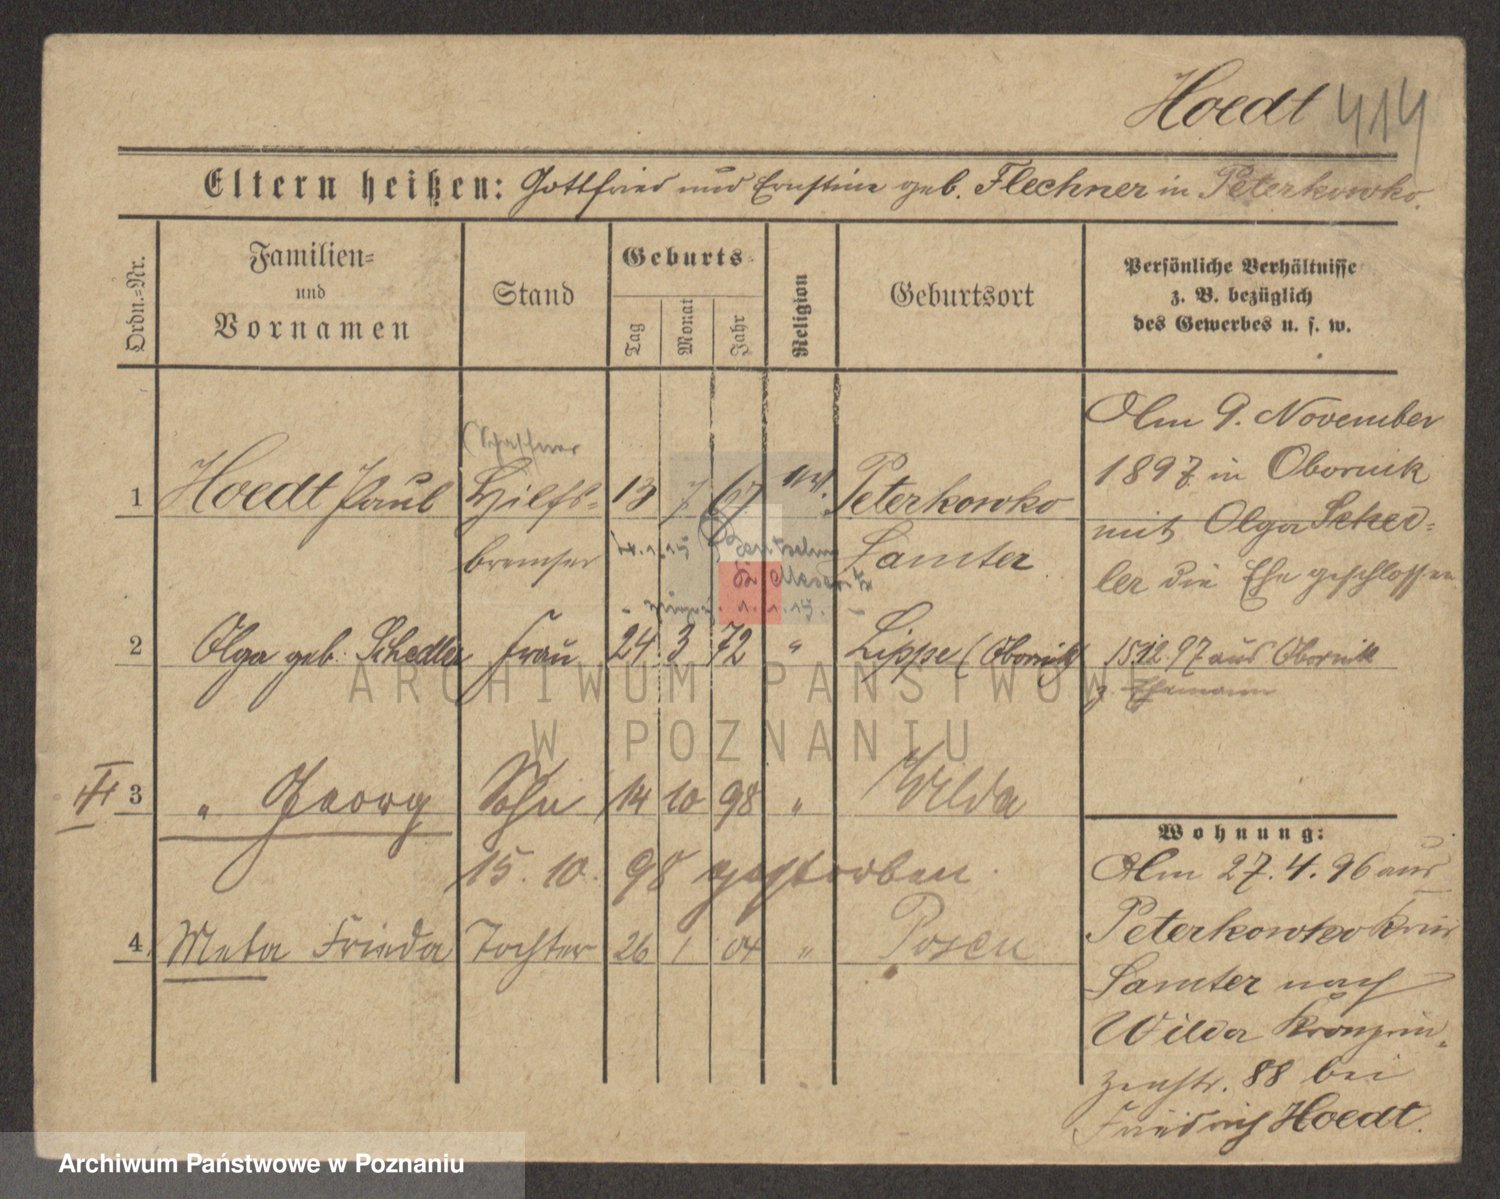 Hoedt 414
Eltern heißen: Gottfried und Ernstine geb. Flechner in Peterkowko.
Ordn.-Nr.
Familien-
und
Vornamen
Stand
Geburts-
Tag
Monat
Jahr
Religion
Geburtsort
Persönliche Verhältnisse
z. B. bezüglich
des Gewerbes u. s. w.
1 Hoedt Paul Hilfs- 13 7 67 ev. Peterkowko
bremser Samter
2 Olga geb. Schedler Frau 24 3 72 " Lippe (Obornik)
III 3 " Georg Sohn 14 10 98 " Wilda
15. 10. 98 gestorben.
4. Meta Frieda Tochter 26 1 04 " Posen
Am 9. November
1897 in Obornik
mit Olga Sched-
ler die Ehe geschlossen
15 12 97 aus Obornik
z. Ehemann
Wohnung:
Am 27. 4. 96 aus
Peterkowko Kreis
Samter nach
Wilda Kronprin-
zenstr. 88 bei
Friedrich Hoedt.
ARCHIWUM PAŃSTWOWE
W POZNANIU
Archiwum Państwowe w Poznaniu